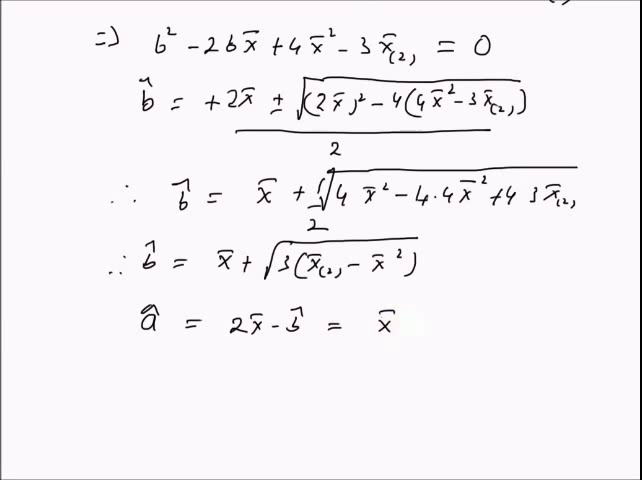 ⇒ b² - 2bx̄ + 4x̄² - 3x̄₍₂₎ = 0
b̂ = +2x̄ ± √((2x̄)² - 4(4x̄² - 3x̄₍₂₎)) / 2
∴ b̂ = x̄ + 1/2 √(4 x̄² - 4·4x̄² + 4 3x̄₍₂₎)
∴ b̂ = x̄ + √(3(x̄₍₂₎ - x̄²))
â = 2x̄ - b̂ = x̄